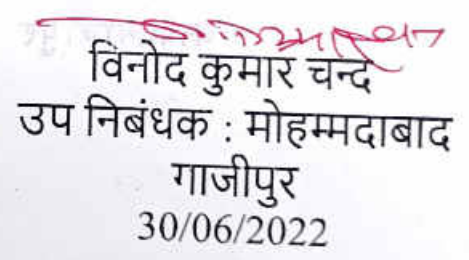 विनोद कुमार चन्द
उप निबंधक : मोहम्मदाबाद
गाजीपुर
30/06/2022